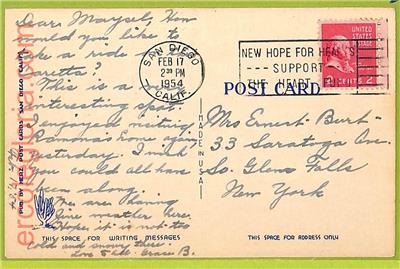 Dear Marysel, How
would you like to
take a ride in the
Caretta?
This is a very
interesting spot.
I enjoyed visiting
Ramona's home here
yesterday. I wish
you could all have
been along.
We are having
fine weather here.
Hope it is not too
cold and snowy there.
Love to all. Grace B.
THIS SPACE FOR WRITING MESSAGES
PUB. BY HERZ POST CARDS, SAN DIEGO, CALIF.
MADE IN USA
SAN DIEGO
2
FEB 17
2 PM
1954
CALIF.
NEW HOPE FOR HEARTS
SUPPORT
THE HEART FUND
UNITED
STATES
POSTAGE
2 CENTS 2
POST CARD
Mrs Ernest Burt
33 Saratoga Ave.
So. Glens Falls
New York
THIS SPACE FOR ADDRESS ONLY